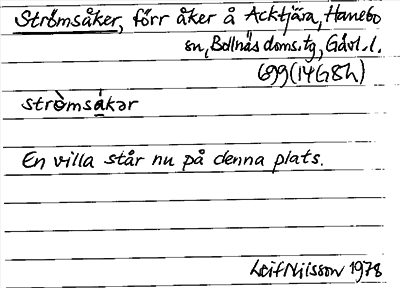 Strömsåker, förr åker å Acktjära, Hanebo
sn, Bollnäs doms.tg, Gävl. l.
699 (14G8h)
stròmsákər
En villa står nu på denna plats.
Leif Nilsson 1978